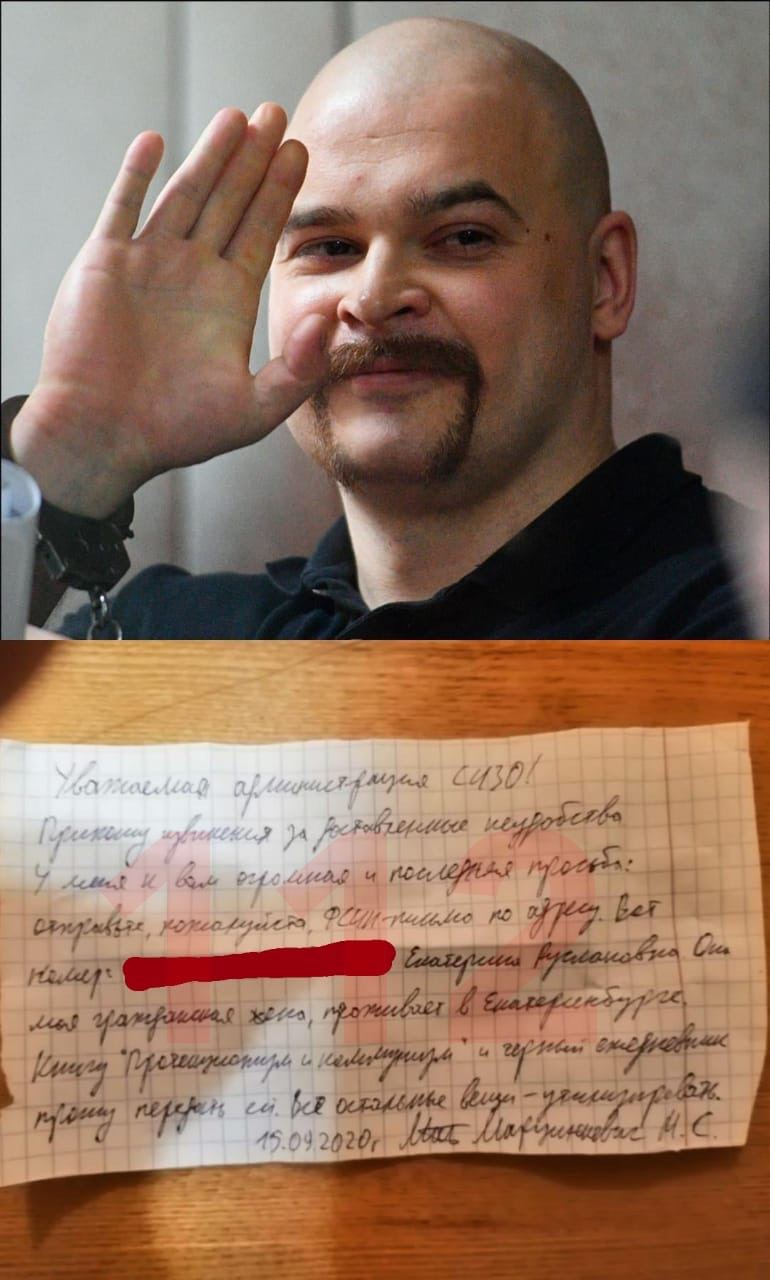 Уважаемая администрация СИЗО!
Приношу извинения за доставленные неудобства
У меня к вам огромная и последняя просьба:
отправьте, пожалуйста, ФСИН-письмо по адресу. Вот
номер: Екатерина Руслановна Она
моя гражданская жена, проживает в Екатеринбурге.
Книгу "Протекционизм и коммунизм" и черный ежедневник
прошу передать ей. Все остальные вещи - утилизировать.
15.09.2020г Марцинкевич М.С.
112